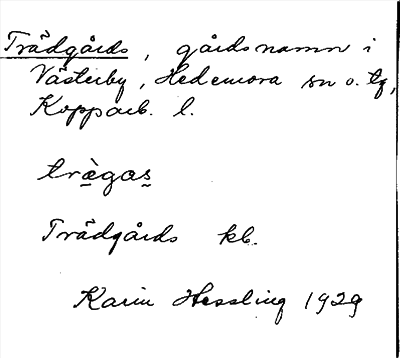 Trädgårds, gårdsnamn i
Västerby, Hedemora sn o. tg,
Kopparb. l.
trägas
Trädgårds kb.
Karin Hessling 1929